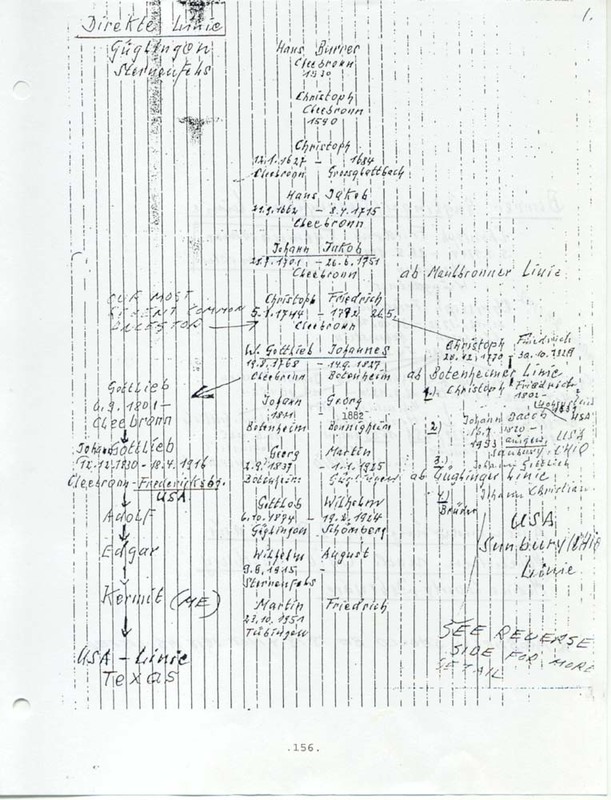 Direkte Linie
Güglingen
Sternenfels
1.
Hans Burrer
Cleebronn
Christoph
Cleebronn
1590
Christoph
12.1.1627 - 1684
Cleebronn Grossglattbach
Hans Jakob
- 8.4.1715
Cleebronn
Johann Jakob
- 26.6.1751
Cleebronn
ab Maulbronner Linie
OUR MOST
RECENT COMMON
ANCESTOR
Christoph Friedrich
5.1.1744 - 1792 26.5.
Cleebronn
Christoph Friedrich
28.12.1770
W. Gottlieb Johannes
- 14.9.1827
Cleebronn Botenheim
ab Botenheimer Linie
1.) Christoph Friedrich
1802-
USA
Gottlieb
6.9.1801-
Cleebronn
Johann Georg
- 1882
Botenheim Bönnigheim
2.) Johann Jacob
1820-
1893
USA
Sunbury, OHIO
Johann Gottlieb
12.12.1830 - 18.4.1916
Cleebronn - Fredericksbg.
USA
Georg Martin
2.9.1837 - 1.1.1925
Botenheim
3.) Johann Gottlieb
ab Güglinger Linie
4.) Johann Christian
Brüder
Adolf
Gottlob Wilhelm
6.10.1874 - 19.2.1924
Güglingen Schömberg
USA
Sunbury/OHIO
Linie
Edgar
Wilhelm August
9.8.1915 -
Sternenfels
Kermit (ME)
Martin Friedrich
23.10.1951
Tübingen
SEE REVERSE
SIDE FOR MORE
DETAIL
USA - Linie
Texas
.156.